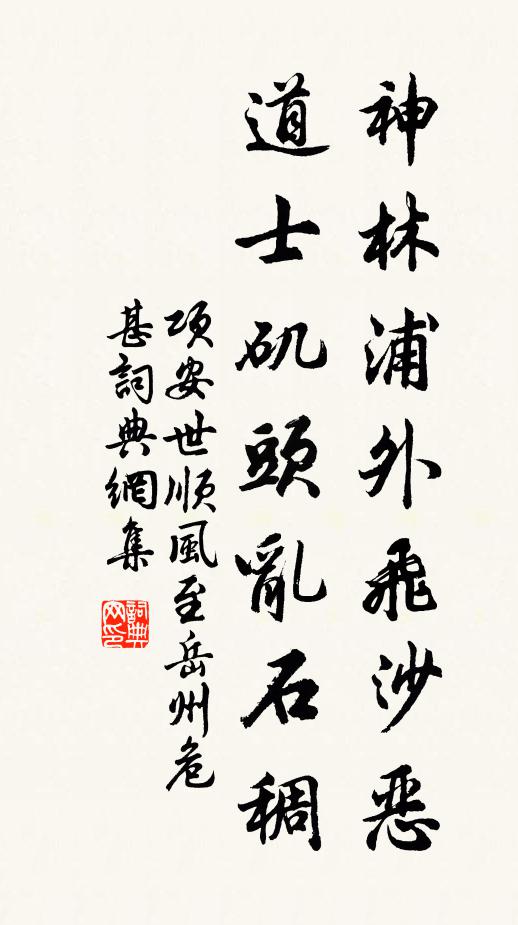 神林浦外飛沙惡
道士矶頭亂石稠
項安世順風至岳州危
甚詞典網集
詞典
网印